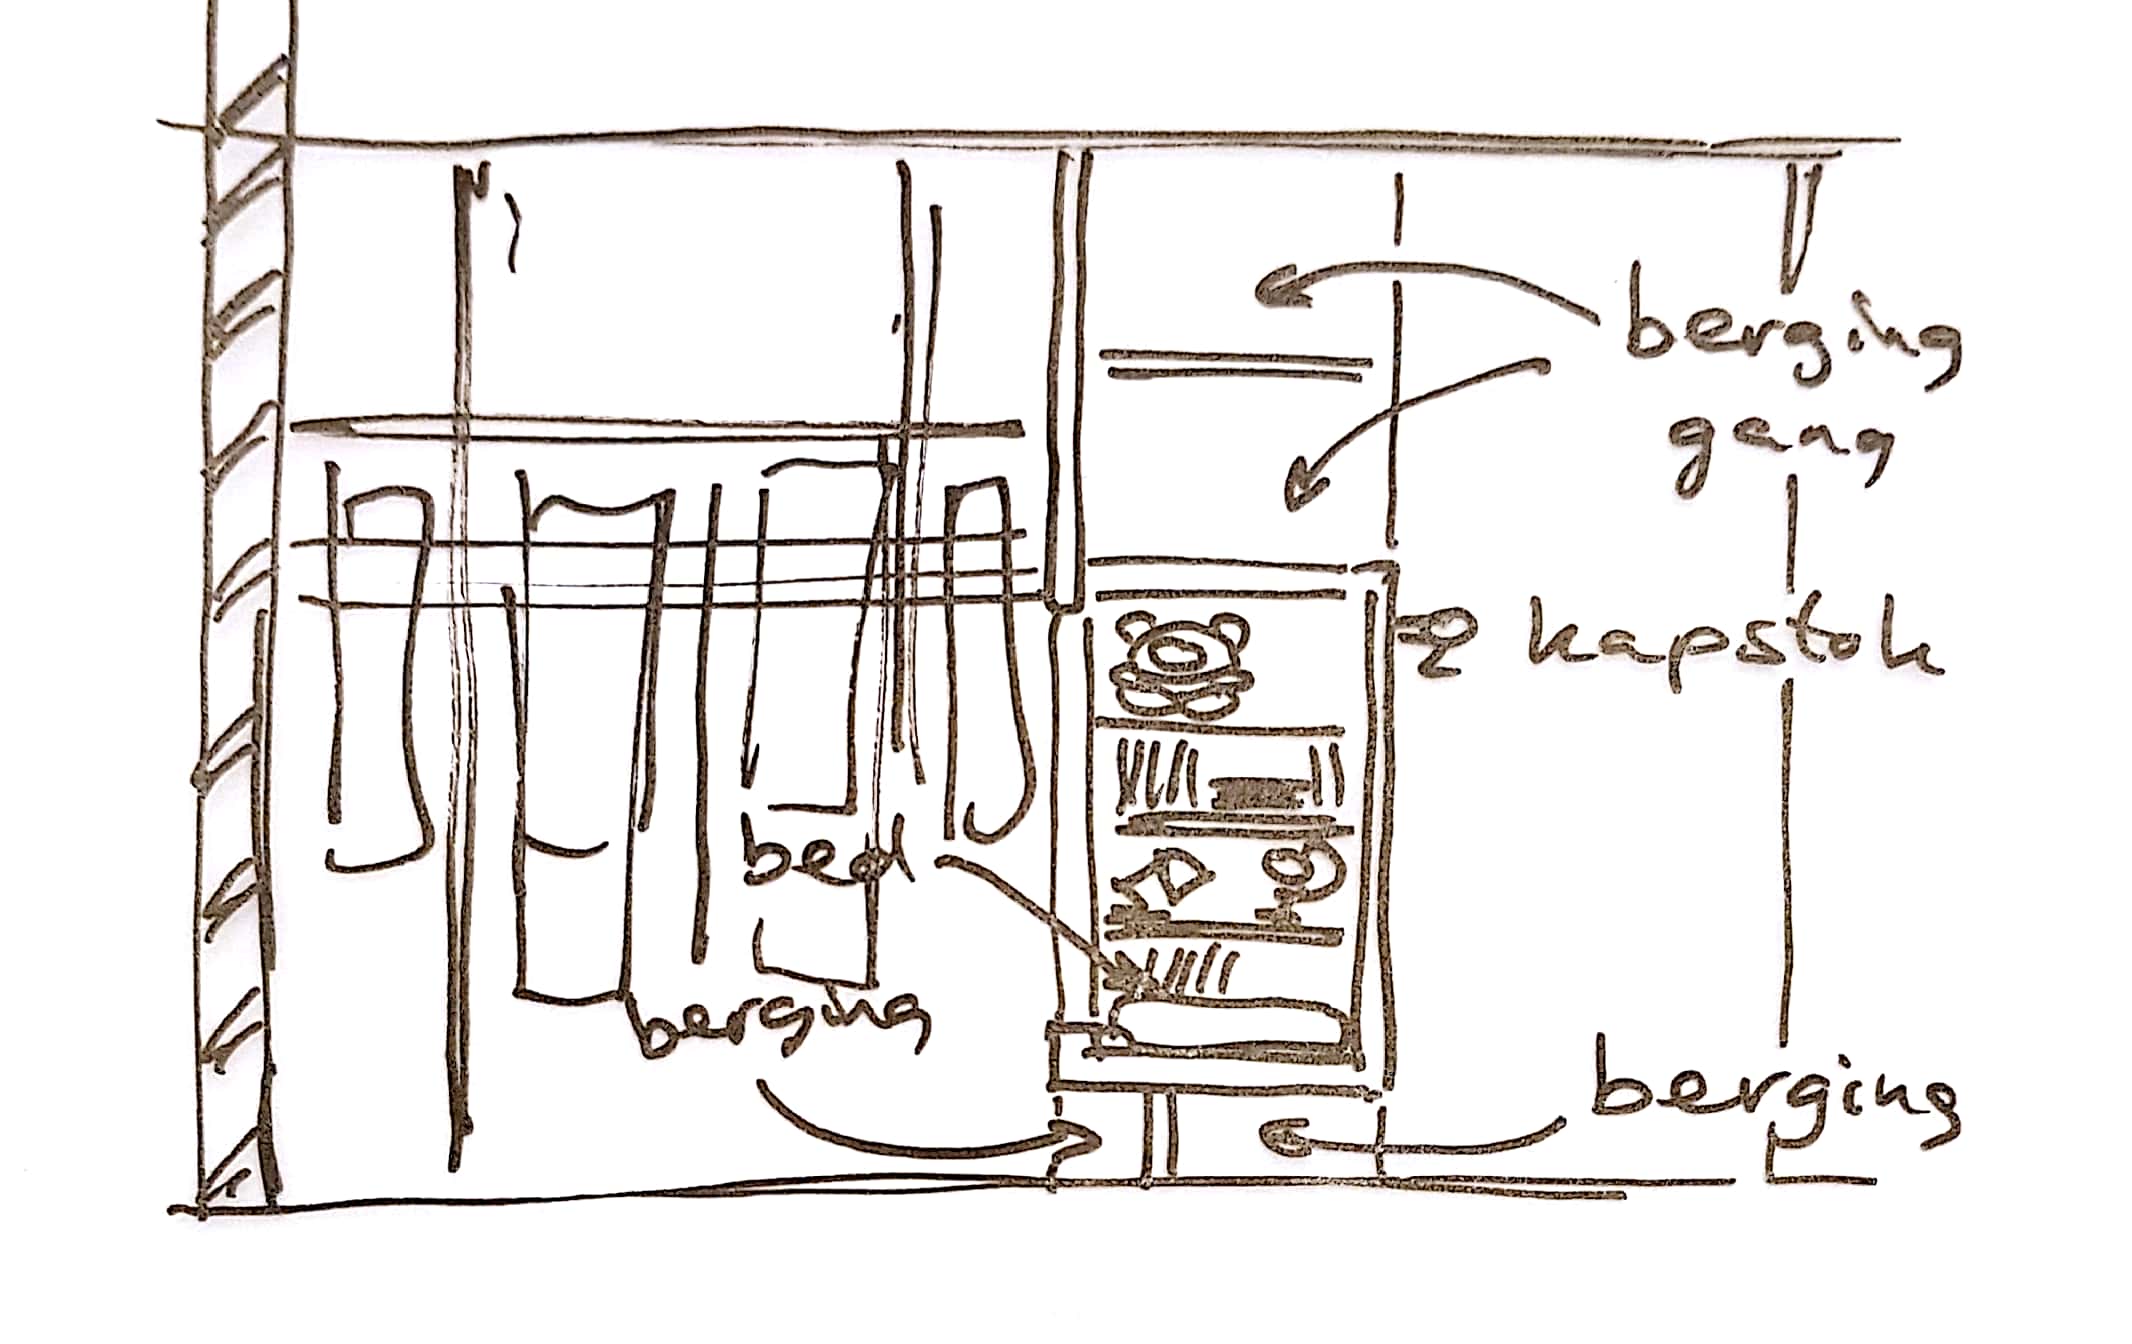 berging
gang
kapstok
bed
berging
berging